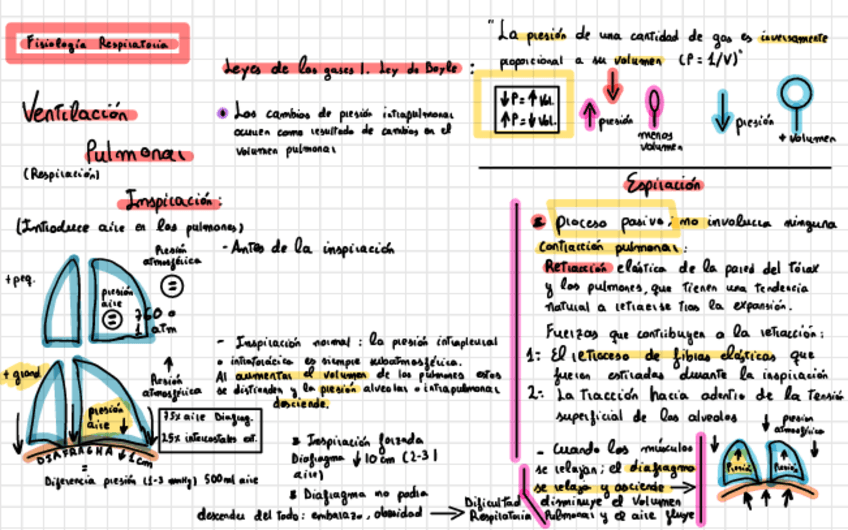 Fisiología Respiratoria
Ventilación
Pulmonar
(Respiración)
Leyes de los gases 1. Ley de Boyle :
Los cambios de presión intrapulmonar
ocurren como resultado de cambios en el
volumen pulmonar
"La presión de una cantidad de gas es inversamente
proporcional a su volumen (P = 1/V)"
↓P = ↑ Vol.
↑P = ↓ Vol.
presión
menos
volumen
presión
+ volumen
Inspiración:
(Introduce aire en los pulmones)
- Antes de la inspiración
Presión
atmosférica
=
+ peq.
presión
aire
=
760 o
1 atm
- Inspiración normal : la presión intrapleural
o intratorácica es siempre subatmosférica.
Al aumentar el volumen de los pulmones estos
se distienden y la presión alveolar o intrapulmonar
desciende.
+ grand
↑
Presión
atmosférica
presión
aire ↓
75% aire Diafrag.
25% intercostales ext.
DIAFRAGMA ↓ 1cm
=
Diferencia presión (1-3 mmHg) 500ml aire
Inspiración forzada
Diafragma ↓ 10 cm (2-3 l
aire)
Diafragma no podía
descender del todo: embarazo, obesidad → Dificultad
Respiratoria
Espiración
Proceso pasivo; no involucra ninguna
contracción pulmonar:
Retracción elástica de la pared del Tórax
y los pulmones, que tienen una tendencia
natural a retraerse tras la expansión.
Fuerzas que contribuyen a la retracción:
1: El retroceso de fibras elásticas que
fueron estiradas durante la inspiración
2: La Tracción hacia adentro de la Tensión
superficial de los alveolos
- Cuando los músculos
se relajan; el diafragma
se relaja y asciende →
disminuye el Volumen
Pulmonar y el aire fluye
↓ presión
atmosférica
Presión
Presión